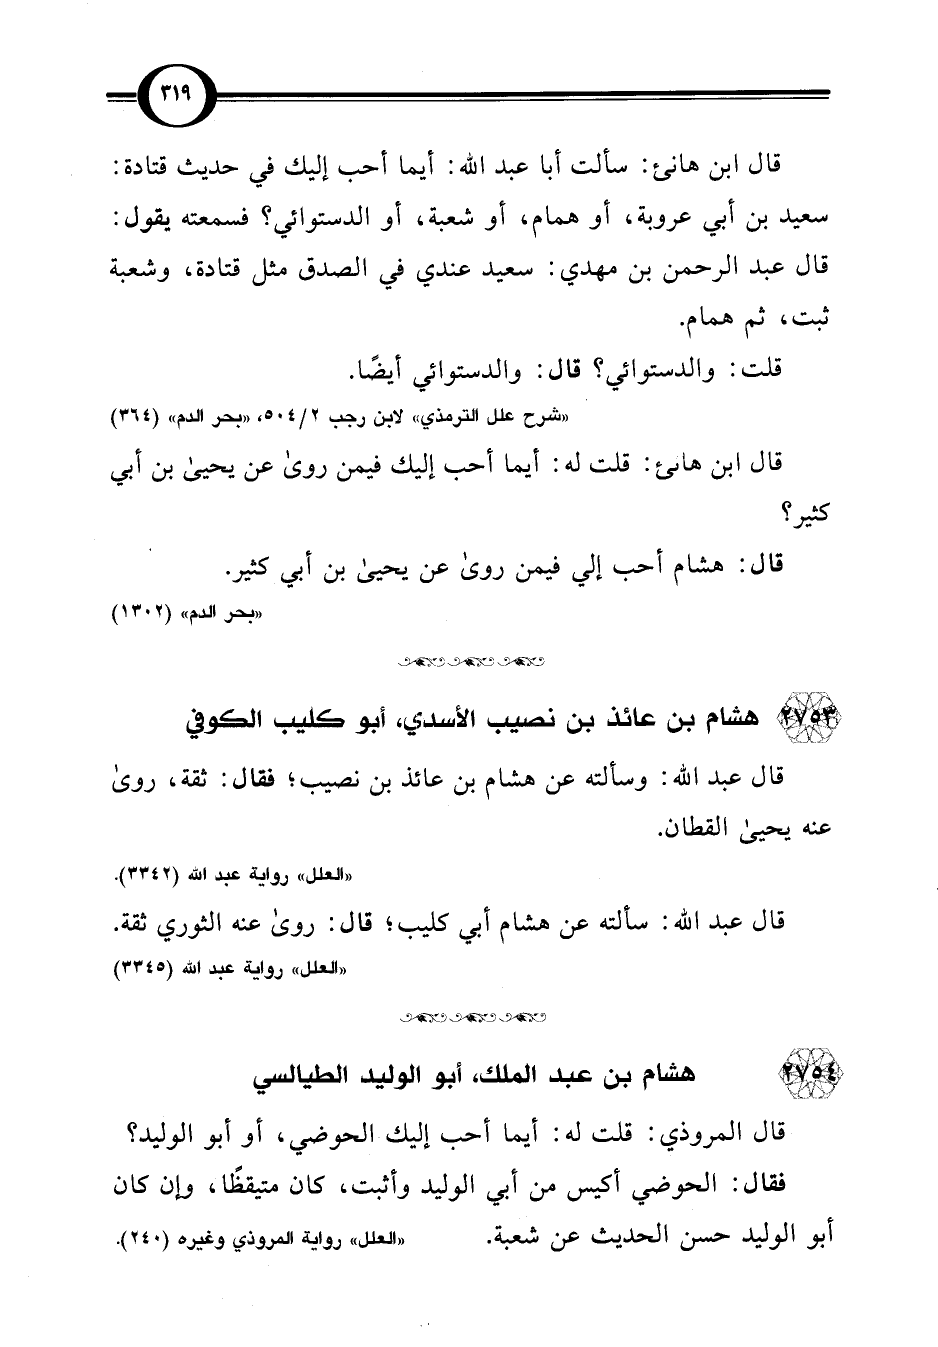 ٣١٩
قال ابن هانئ: سألت أبا عبد الله: أيما أحب إليك في حديث قتادة:
سعيد بن أبي عروبة، أو همام، أو شعبة، أو الدستوائي؟ فسمعته يقول:
قال عبد الرحمن بن مهدي: سعيد عندي في الصدق مثل قتادة، وشعبة
ثبت، ثم همام.
قلت: والدستوائي؟ قال: والدستوائي أيضًا.
«شرح علل الترمذي» لابن رجب ٥٠٤/٢، «بحر الدم» (٣٦٤)
قال ابن هانئ: قلت له: أيما أحب إليك فيمن روىٰ عن يحيىٰ بن أبي
كثير؟
قال: هشام أحب إلي فيمن روىٰ عن يحيىٰ بن أبي كثير.
«بحر الدم» (١٣٠٢)
٢٧٥٣ هشام بن عائذ بن نصيب الأسدي، أبو كليب الكوفي
قال عبد الله: وسألته عن هشام بن عائذ بن نصيب؛ فقال: ثقة، روىٰ
عنه يحيىٰ القطان.
«العلل» رواية عبد الله (٣٣٤٢).
قال عبد الله: سألته عن هشام أبي كليب؛ قال: روىٰ عنه الثوري ثقة.
«العلل» رواية عبد الله (٣٣٤٥)
٢٧٥٤ هشام بن عبد الملك، أبو الوليد الطيالسي
قال المروذي: قلت له: أيما أحب إليك الحوضي، أو أبو الوليد؟
فقال: الحوضي أكيس من أبي الوليد وأثبت، كان متيقظًا، وإن كان
أبو الوليد حسن الحديث عن شعبة. «العلل» رواية المروذي وغيره (٢٤٠).